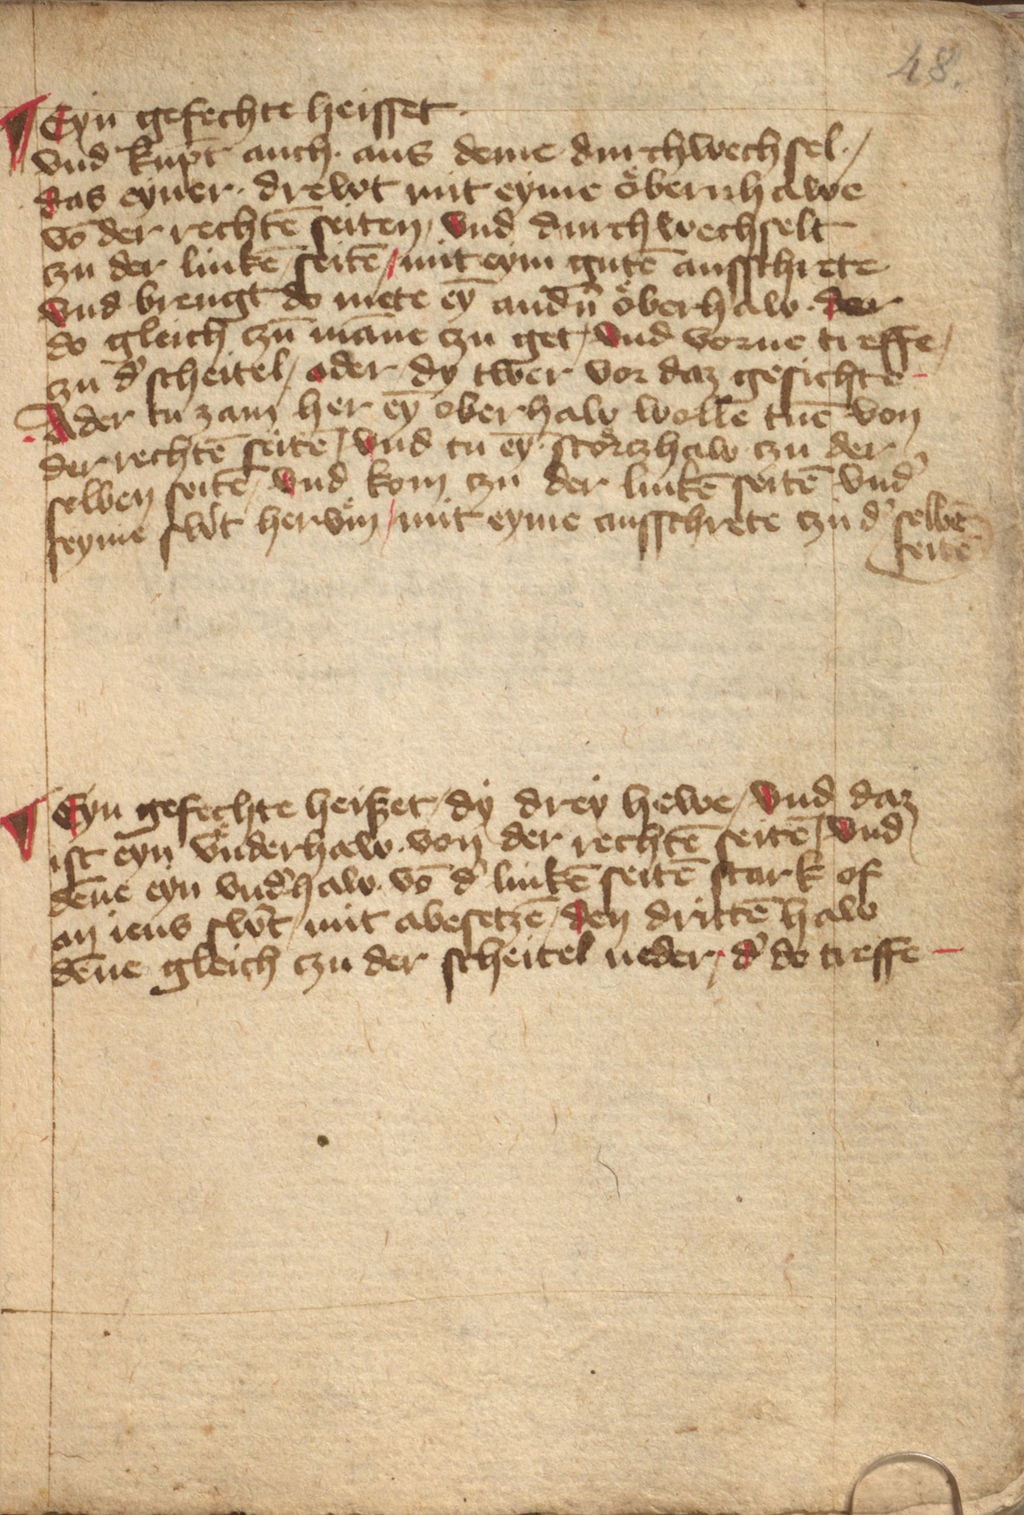 48.
Eyn gefechte heisset ·
vnd kūpt auch · aus deme durchwechsel · /
das eyner · drewt mit eyme öbernhawe
vō der rechtē seiten / vnd durchwechselt
czu der linkē seitē / mit eym gutē ausschrete
vnd brengt do mete eȳ andn̄ öberhaw · der
do gleich czū māne czu get / vnd vorne treffe /
czu d' scheitel / ader dy twer vor daz gesichte –
Ader tu zam her eȳ oberhaw wolle tuē von
der rechtē seitē / vnd tu eȳ störczhaw czu der
selben seitē / vnd kom czu der linkē seitē vnd'
seyme sw't her vm̄ / mit eyme ausschrete czu d' selbē
seitē
Eyn gefechte heißet / dy drey hewe / vnd daz
ist eyn vnderhaw · von der rechtē seitē / vnd
dēne eyn vnd'haw · vō d' linkē seitē stark of
an iens sw't / mit abesetzē / den drittē haw
dēne gleich czu der scheitel neder / d' do treffe –